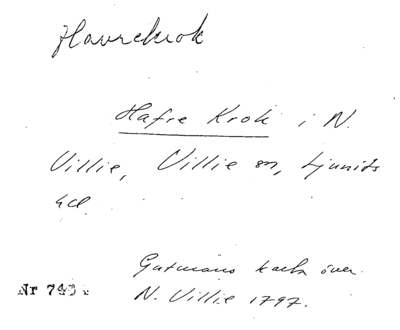 Havrekrok
Hafre Krok i N.
Villie, Villie sn, Ljunits
hd.
Gutmans karta över
Nr 743
N. Villie 1797.